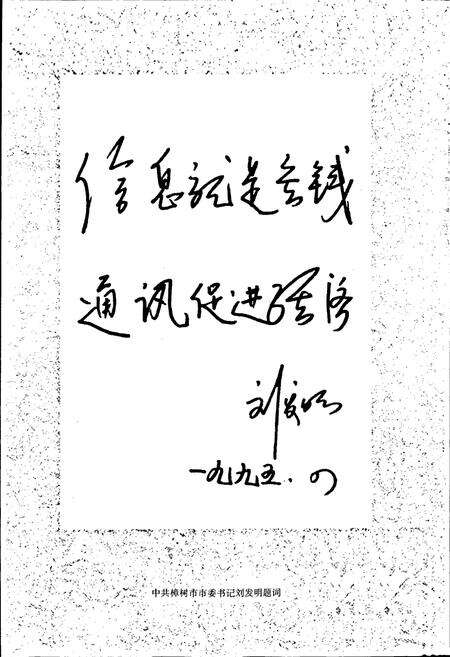 信息就是金钱
通讯促进经济
刘发明
一九九五.四
中共樟树市市委书记刘发明题词